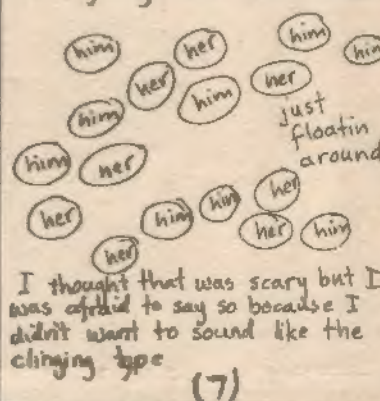 him
her
him
him
her
her
him
him
just
floatin
around
him
her
her
her
him
him
her
him
her
I thought that was scary but I
was afraid to say so because I
didn't want to sound like the
clinging type
(7)